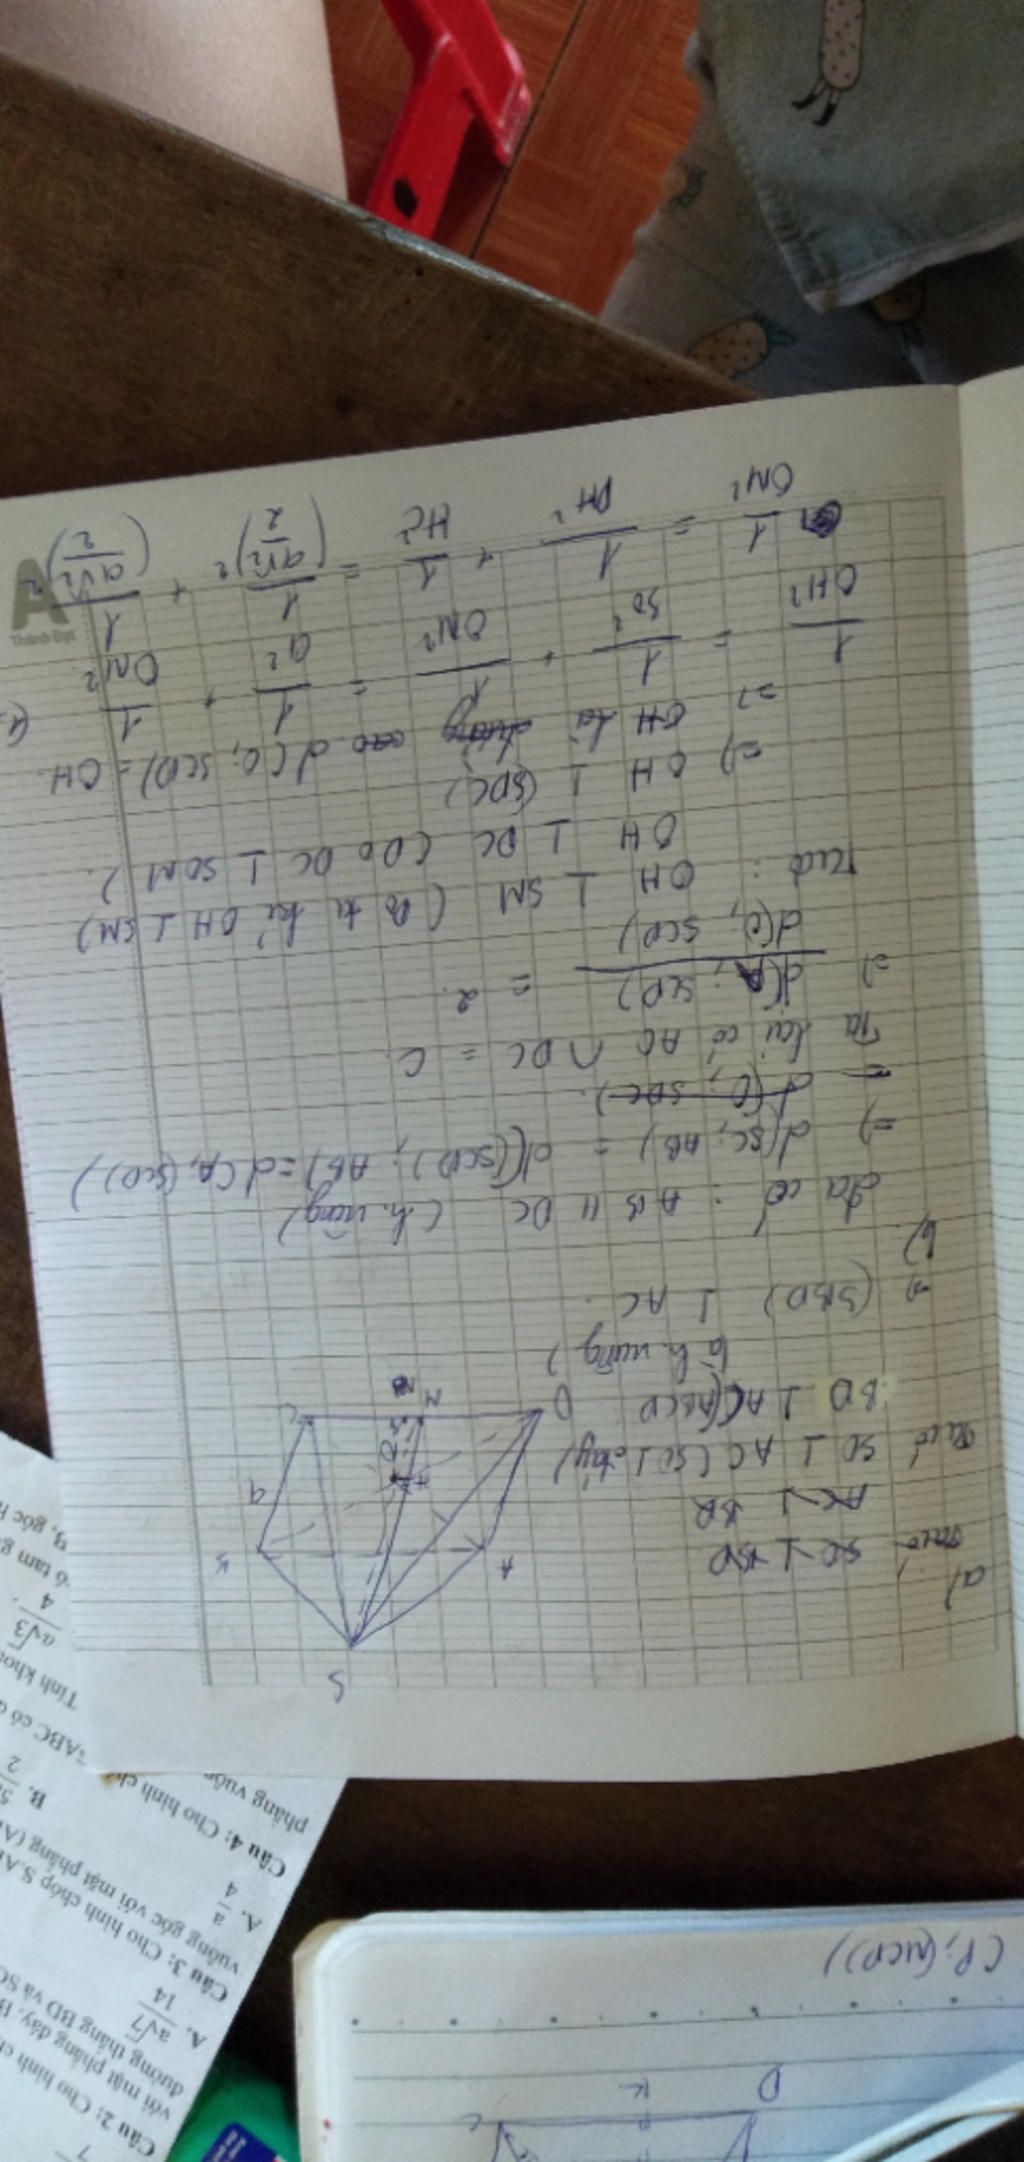 S
A
B
a
O
H
D
M
C
a)
SO ⊥ BD
AC ⊥ BD
Ta có SO ⊥ AC (SO ⊥ đáy)
BD ⊥ AC (ABCD
là h. vuông)
=> (SBD) ⊥ AC.
b)
Ta có : AB // DC (h. vuông)
=> d(SC; AB) = d((SCD); AB) = d(A, (SCD))
= d(O; SDC).
Ta lại có AO ∩ DC = C
=> d(A; SCD) / d(O, SCD) = 2.
Ta có : OH ⊥ SM (Do ta kẻ OH ⊥ SM)
OH ⊥ DC (Do DC ⊥ SOM).
=> OH ⊥ (SDC)
=> OH là d(O; SCD) = OH.
1/OH² = 1/SO² + 1/OM² = 1/a² + 1/OM²
1/OM² = 1/DH² + 1/HC² = 1/(a√2/2)² + 1/(a√2/2)²
A
Thành Đạt
Câu 2: Cho hình
với mặt phẳng đáy,
đường thẳng BD và SC
A. a√7/14
Câu 3: Cho hình chóp S.A
vuông góc với mặt phẳng
A. a/4
B.
Câu 4: Cho hình
phẳng
ABC có
Tính
a√3/4.
tam
B. góc
(P; (MCD))
D
K
C